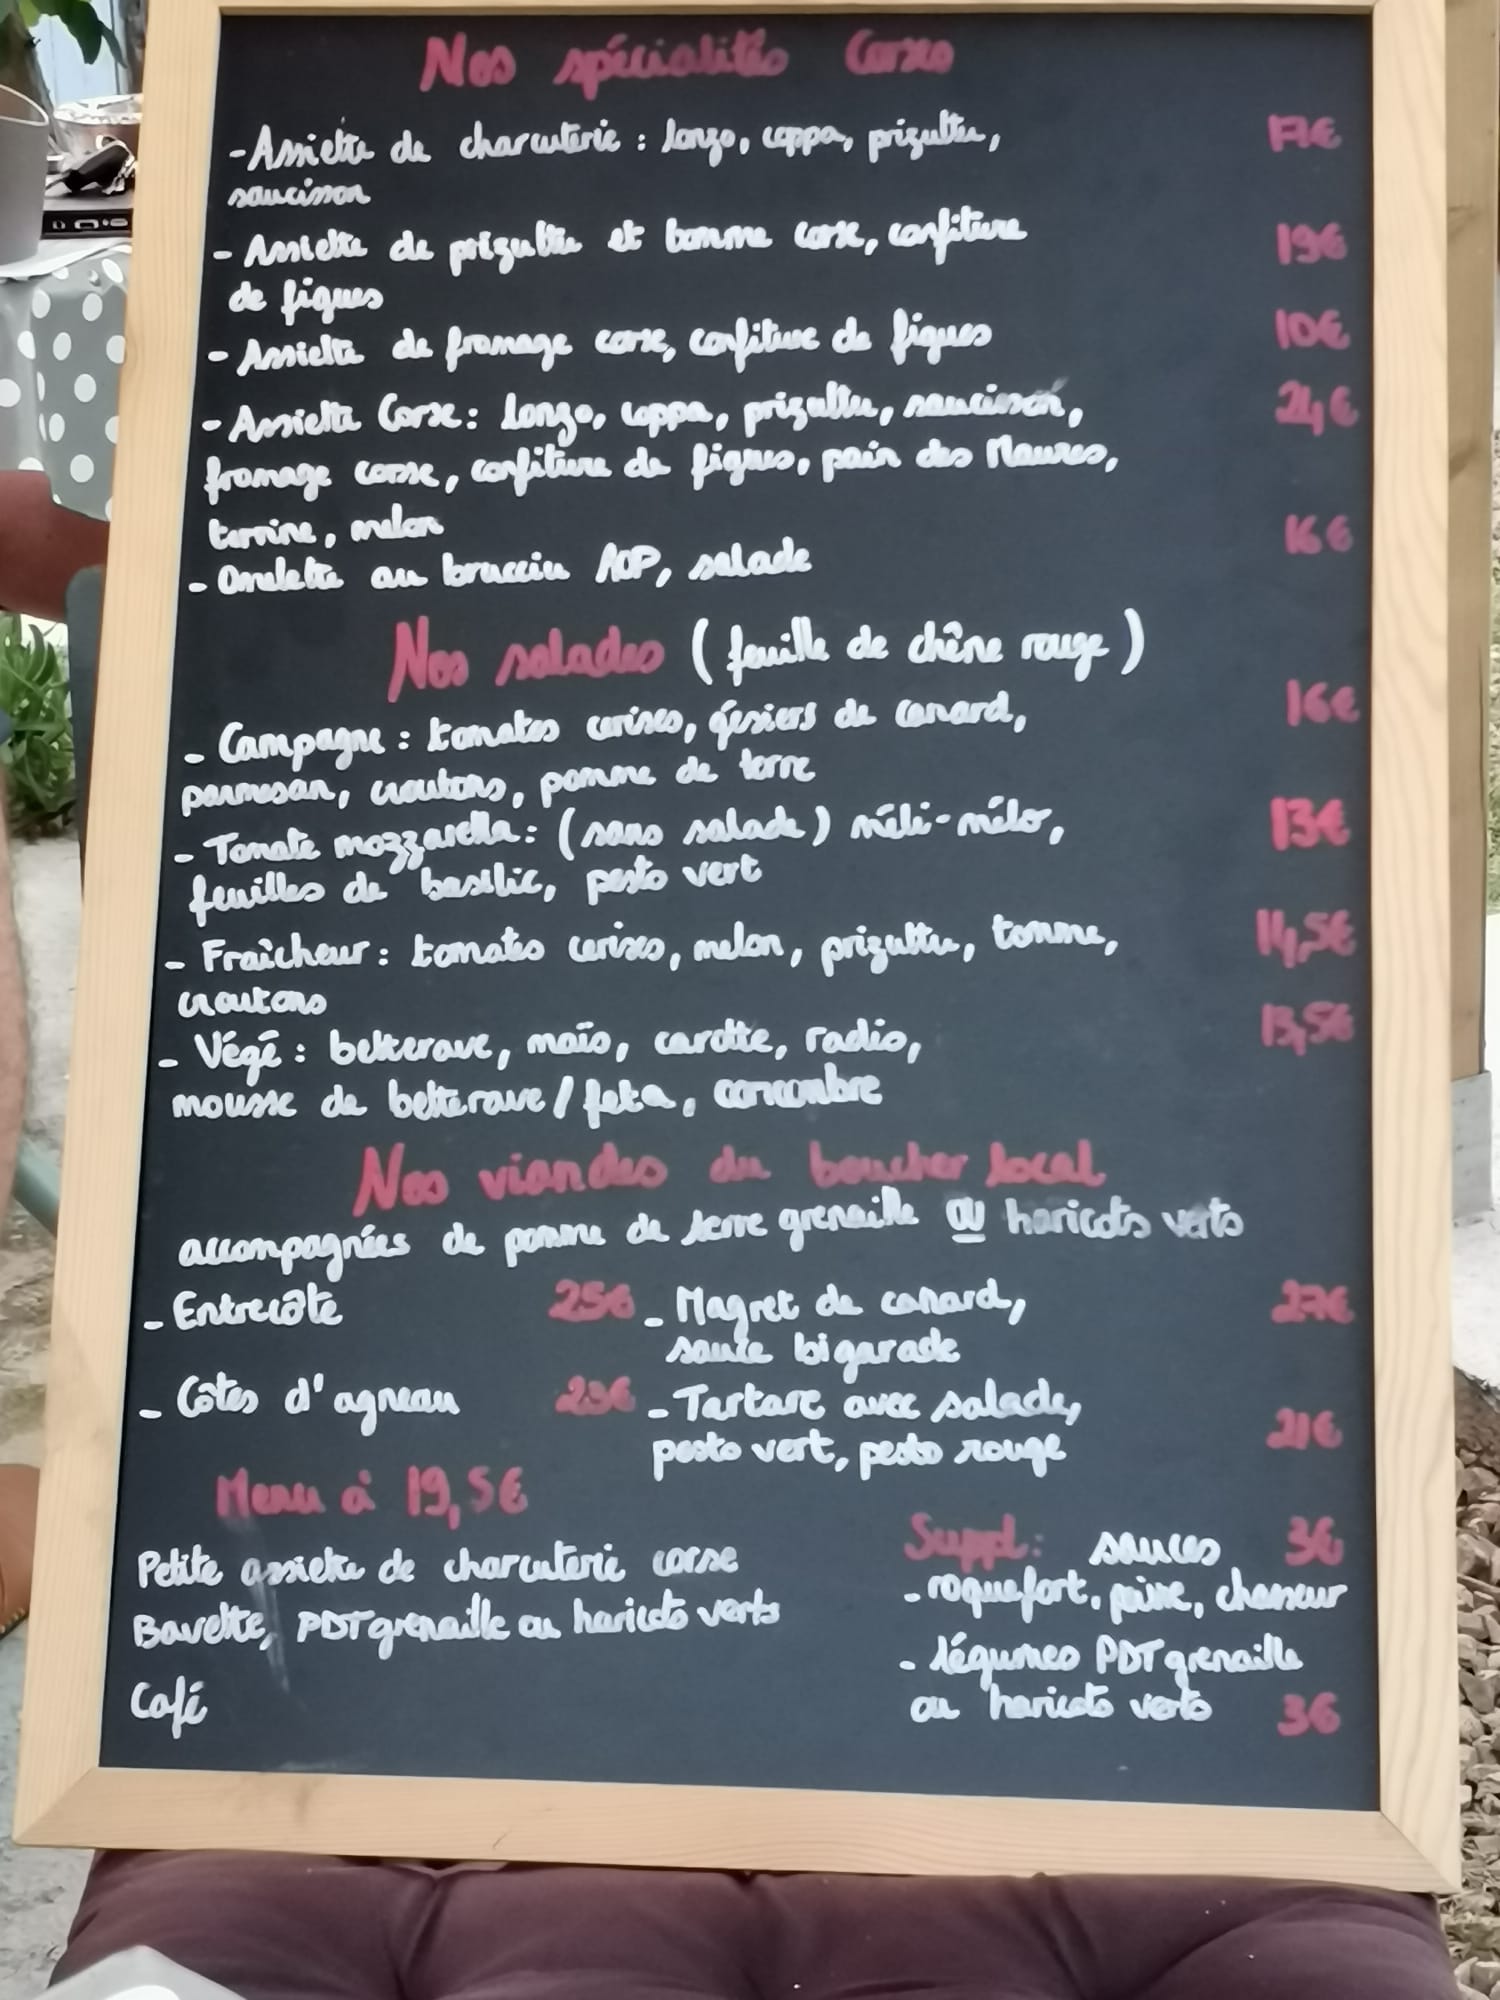 Nos spécialités Corses
- Assiette de charcuterie : lonzo, coppa, prizuttu, 17€
saucisson
- Assiette de prizuttu et tomme corse, confiture 19€
de figues
- Assiette de fromage corse, confiture de figues 10€
- Assiette Corse : Lonzo, coppa, prizuttu, saucisson, 24€
fromage corse, confiture de figues, pain des Maures,
terrine, melon
- Omelette au brucciu AOP, salade 16€
Nos salades (feuille de chêne rouge)
- Campagne : tomates cerises, gésiers de canard, 16€
parmesan, croutons, pomme de terre
- Tomate mozzarella : (sans salade) méli-mélo, 13€
feuilles de basilic, pesto vert
- Fraîcheur : tomates cerises, melon, prizuttu, tomme, 14,5€
croutons
- Végé : betterave, maïs, carotte, radis, 13,5€
mousse de betterave / feta, concombre
Nos viandes du boucher local
accompagnées de pomme de terre grenaille ou haricots verts
- Entrecôte 25€
- Magret de canard, 27€
sauce bigarade
- Côtes d'agneau 23€
- Tartare avec salade,
pesto vert, pesto rouge 21€
Menu à 19,5€
Petite assiette de charcuterie corse
Bavette, PDT grenaille ou haricots verts
Café
Suppl : sauces 3€
- roquefort, poivre, chasseur
- légumes PDT grenaille
ou haricots verts 3€